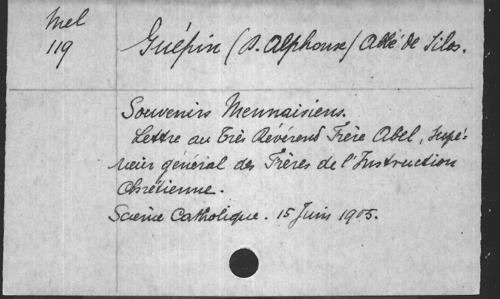 Mel
119
Guépin (D. Alphonse) Abbé de Silos.
Souvenirs Mennaisiens.
Lettre au Très Révérend Frère Abel, Supé-
rieur général des Frères de l'Instruction
Chrétienne.
Science Catholique. 15 Juin 1905.